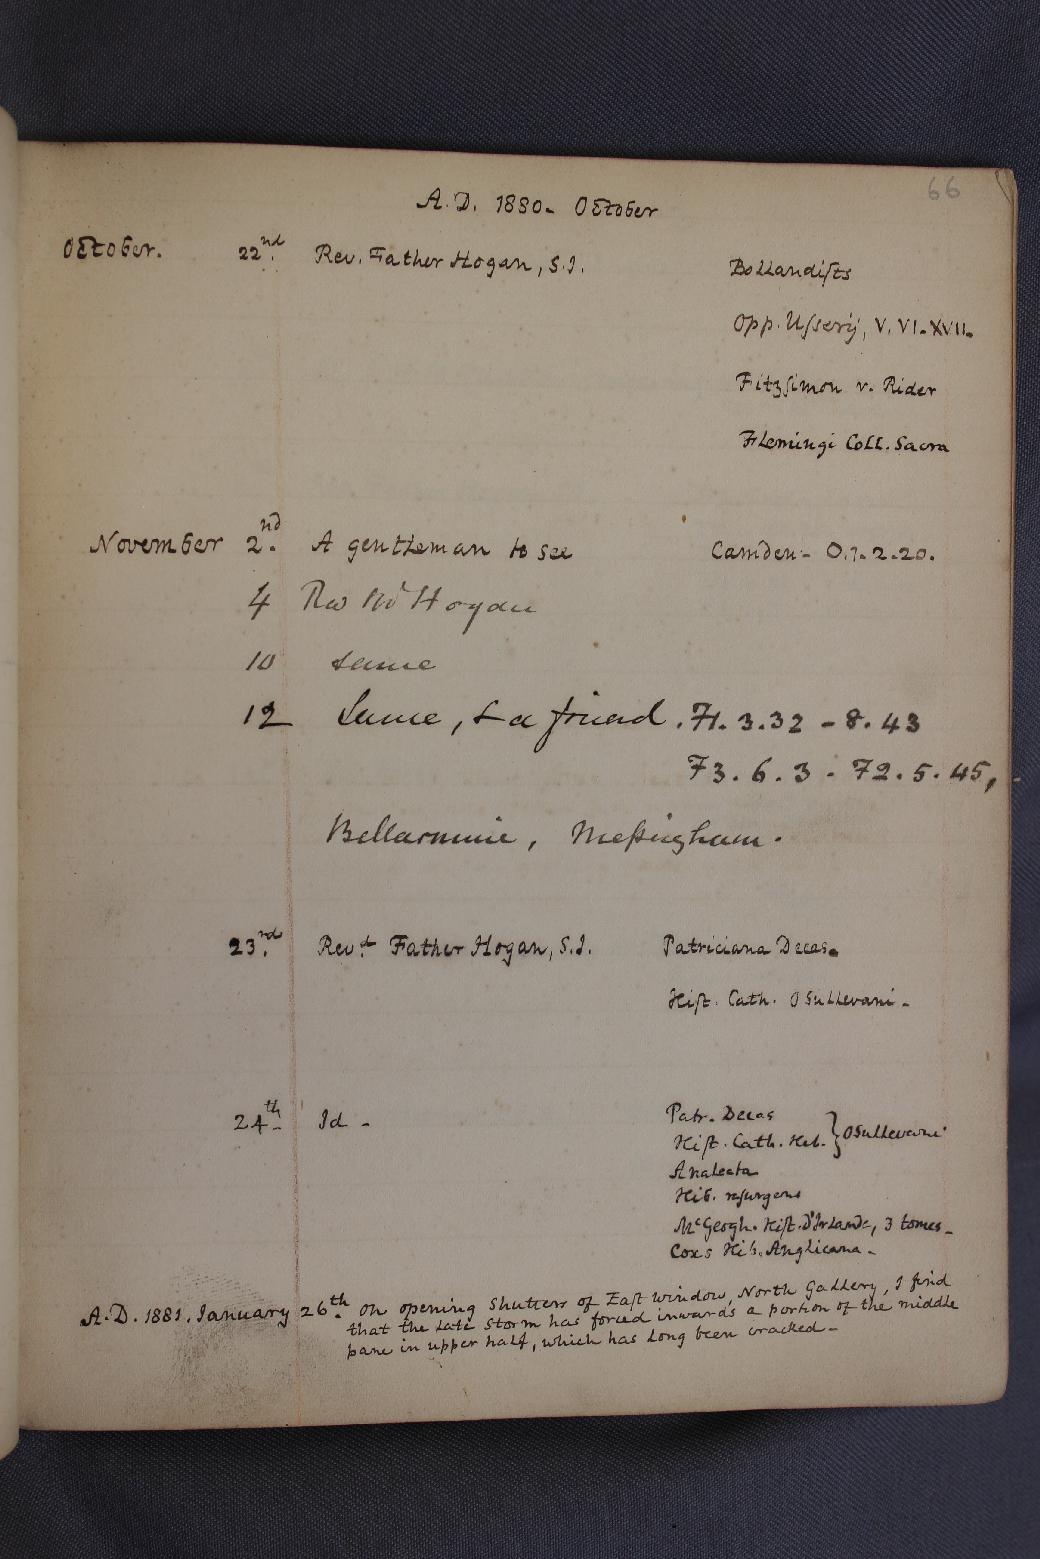 66
A.D. 1880. October
October. 22nd. Rev. Father Hogan, S.J. Bollandiſts
Opp. Uſserij, V. VI. XVII.
Fitzſimon v. Rider
Flemingi Coll. Sacra
November 2nd. A gentleman to see Camden - O.1.2.20.
4 Hogan
10 same
12 Same, & a friend. 71.3.32 - 8.43
73.6.3 - 72.5.45,
Bellarmine, Meßingham.
23rd. Revd. Father Hogan, S.J. Patriciana Decas.
Hiſt. Cath. OSullevani -
24th. Id - Patr. Decas
Hiſt. Cath. Hib. } OSullevani
Analecta
Hib. resurgens
McGeogh. Hiſt. D'Irlande, 3 tomes -
Coxs Hib. Anglicana -
A.D. 1881. January 26th. On opening Shutters of Eaſt window, North Gallery, I find
that the late Storm has forced inwards a portion of the middle
pane in upper half, which has long been cracked -